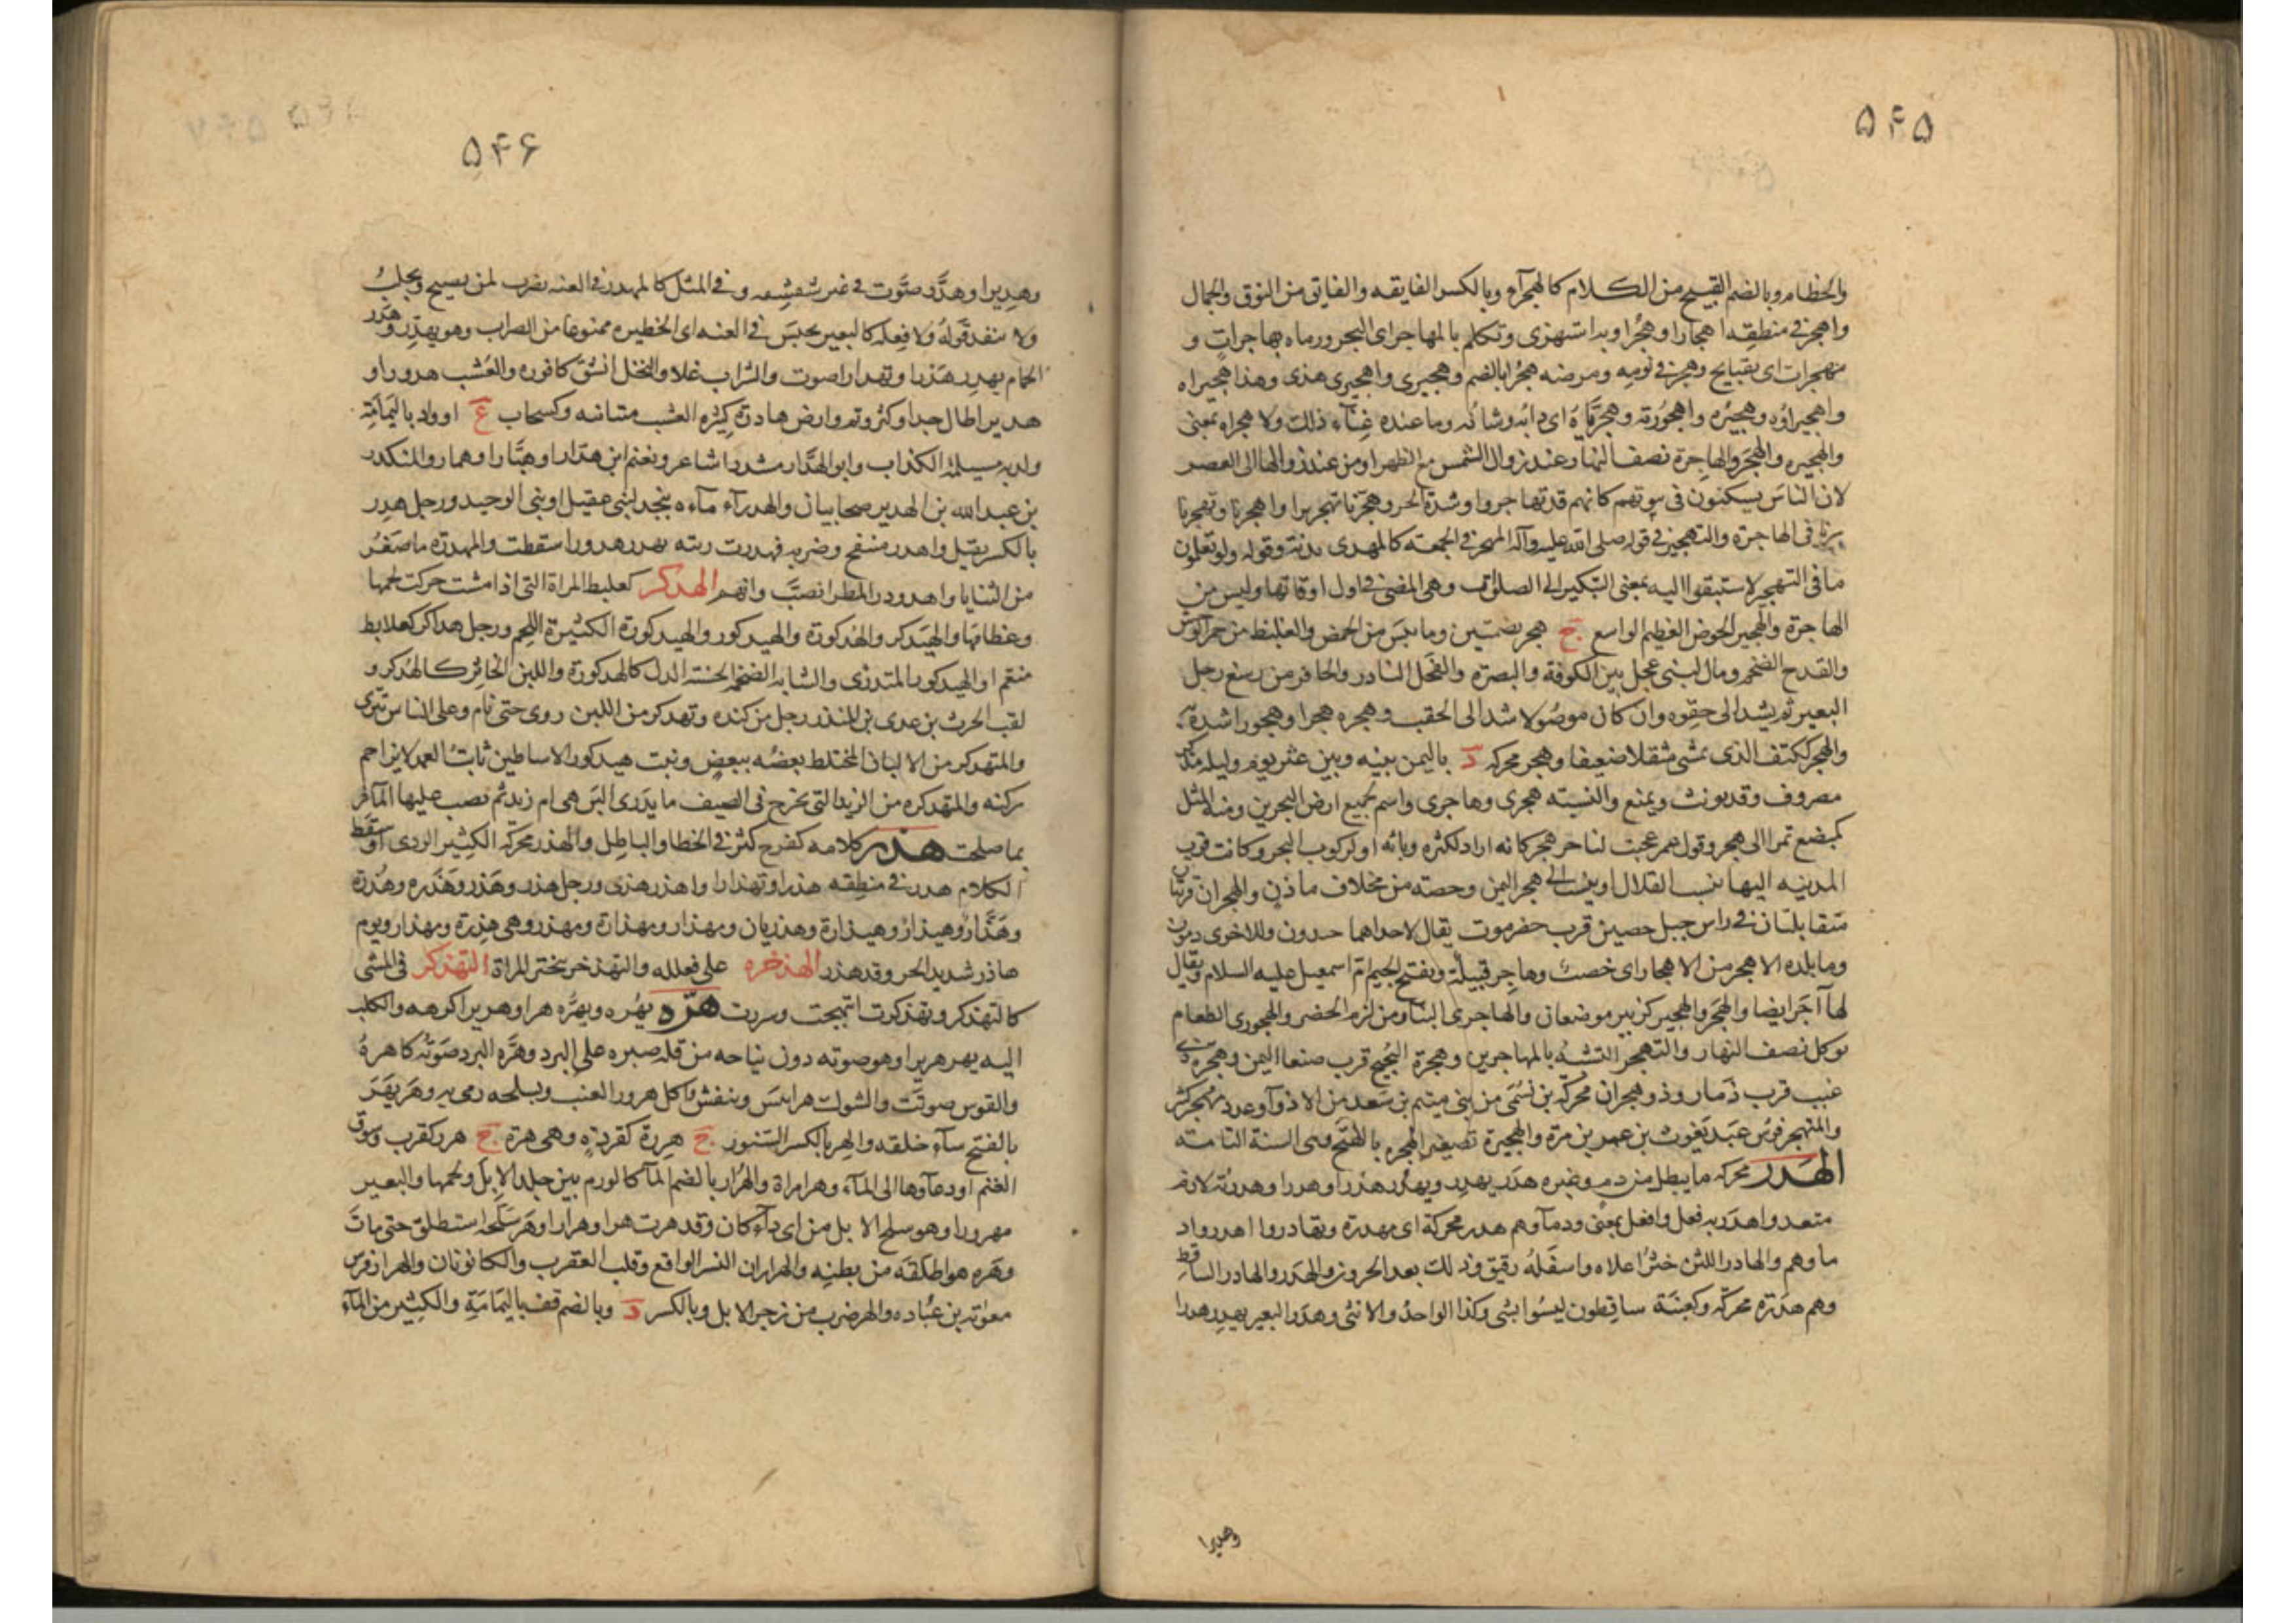 ۵۴۵
والخطام وبالضم القبيح من الكلام كالهجراء وبالكسر الفايقه والفايق من النوق والجمال
واهجر في منطقه اهجارا وهجرا وبه استهزى وتكلم بالمهاجر اى الهجر ورماه بهاجرات و
مهجرات اى بقبايح وهجر في نومه ومرضه هجرا بالضم وهجيرى واهجيرى هذى وهذا هجيراه
واهجيراؤه وهجيره واهجورته وهجرياه اى دابه وشانه وما عنده غناء ذلك ولا هجراه بمعنى
والهجيره والهجر والهاجرة نصف النهار عند زوال الشمس مع الظهر او من عند زوالها الى العصر
لان الناس يسكنون في بيوتهم كانهم قد تهاجروا وشدة الحر وهجرنا تهجيرا واهجرنا وتهجرنا
سرنا في الهاجرة والتهجير في قوله صلى الله عليه وآله المهجر في الجمعه كالمهدى بدنة وقوله ولو تعلمون
ما في التهجير لاستبقوا اليه بمعنى التبكير الى الصلوات وهى المضى في اول اوقاتها وليس من
الهاجرة والهجير الحوض العظيم الواسع ج هجر بضمتين وما يبس من الحمض والغليظ من حمر الوحش
والقدح الضخم ومال لبنى عجل بين الكوفة والبصرة والفحل الفادر والحافر من رسغ رجل
البعير ثم يشد الى حقوه وان كان موصولا شد الى الحقب وهجره هجرا وهجورا شده به
والهجر ككتف الذى يمشى مثقلا ضعيفا وهجر محركه د باليمن بينه وبين عثر يوم وليله مذكر
مصروف وقد يونث ويمنع والنسبته هجرى وهاجرى واسم لجميع ارض البحرين ومنه المثل
كمبضع تمرا الى هجر وقول عمر عجبت لتاجر هجر كانه اراد لكثره وبائه او لركوب البحر وكانت قرب
المدينه اليها تنسب القلال او ينسب الى هجر اليمن وحصنه من مخلاف ماذن والهجران قريتان
متقابلتان في راس جبل حصين قرب حضرموت يقال لاحداهما خيدون وللاخرى دمون
وما بلده الا هجر من الاهجار اى خصب وهاجر قبيلة وبفتح الجيم ام اسمعيل عليه السلام ويقال
لها آجر ايضا والهجر والهجير كزبير موضعان والهاجرى البناء ومن لزم الحضر والهجورى الطعام
يوكل نصف النهار والتهجر التشبه بالمهاجرين وهجرة البحيح قرب صنعا اليمن وهجرة ذى
غبب قرب ذمار وذو هجران محركة بن نسمى من بنى ميتم بن سعد من الاذوآ وعدد مهجر كثر
والمتهجر فرس عبد يغوث بن عمرو بن مرة والهجيرة تصغير الهجره بالفتح وهى السنة التامته
الهدر محركه ما يبطل من دم وغيره هدر يهدر ويهدر هدرا وهدرا وهدرته لازم
متعد واهدر به فعل وافعل بمعنى ودماوهم هدر محركة اى مهدرة وتهادروا اهدروا د
ماوهم والهادر اللبن خثر اعلاه واسفله رقيق وذلك بعد الحرور والهدر والهادر الساقط
وهم هدرة محركة وكعنبة ساقطون ليسوا بشى وكذا الواحد والانثى وهدر البعير يهدر هدرا
وهديرا
۵۴۶
وهديرا وهدر صوت في غير شقشقه وفي المثل كالمهدر في العنه يضرب لمن يصيح ويجلب
ولا ينفذ قوله ولا فعله كالبعير يحبس في العنه اى الخطيره ممنوعا من الضراب وهو يهدر وهدر
الحمام يهدر هدرا وتهدارا صوت والشراب غلا والنخل انشق كافوره والعشب هدورا و
هديرا طال جدا وكثر وتم وارض هادرة كثيرة العشب متناهيه وكسحاب ع او واد باليمامة
ولد به مسيلمة الكذاب وابو الهدار مشددا شاعر ونعيم ابن هدار او هبار او همار والمنكدر
بن عبد الله بن الهدير صحابيان والهدراء ماءه بنجد لبنى عقيل او بنى الوحيد ورجل هدر
بالكسر ثقيل واهدر منتفخ وضربه فهدرت رئته يهدر هدورا سقطت والمهدرة ما صغر
من الثنايا واهدودر المطر انصب وانهمر الهدكر كعلبط المراة التى اذا مشت حركت لحمها
وعظامها والهيدكر والهدكورة والهيدكور والهيدكورة الكثيرة اللحم ورجل هداكر كعلابط
منعم او الهيدكور المتدزى والشابه الضخمة الحسنة الدل كالهدكورة واللبن الخاثر كالهدكر و
لقب الحرث بن عدى بن المنذر رجل من كنده وتهدكر من اللبن روى حتى نام وعلى الناس تنزى
والمتهدكر من الالبان المختلط بعضه ببعض وبيت هيدكور الاساطين ثابت العمد لا يزاحم
ركنه والمتهدكره من الزبدا التى تخرج في الصيف ما يدرى البن هى ام زبد ثم يصب عليها الماء فر
بما صلحت هذر كلامه كفرح كثر في الخطا والباطل والهذر محركة الكثير الردى او سقط
الكلام هذر في منطقه هذرا وتهذارا واهذر هذى ورجل هذر وهذر وهذره وهذرة
وهذار وهيذار وهيذارة وهذريان ومهذار ومهذارة ومهذر وهى هذرة ومهذار ويوم
هاذر شديد الحر وقد هذر الهذخره على فعلله والتهذخر تبختر المراة التهذكر في المشى
كالتهذكر وتهذكرت ابتهجت وسرت هره يهره ويهره هرا وهريرا كرهه والكلب
اليه يهر هريرا وهو صوته دون نباحه من قله صبره على البرد وهره البرد صوته كاهره
والقوس صوتت والشوك هرا يبس وتنفش واكل هرور العنب وبسلحه رمى به وهر يهر
بالفتح ساء خلقه والهر بالكسر السنور ج هررة كقردة وهى هرة ج هرر كقرب وسوق
الغنم او دعاوها الى الماء وهر امراة والهرار بالضم داء كالورم بين جلد الابل ولحمها والبعير
مهرور او هو سلح الابل من اى داء كان وقد هرت هرا وهرارا وهر سلحه استطلق حتى مات
وهره هو اطلقه من بطنه والهراران النسر الواقع وقلب العقرب والكانونان والهرار فرس
معوية بن عباده والهر ضرب من زجر الابل وبالكسر د وبالضم قف باليمامة والكثير من الماء